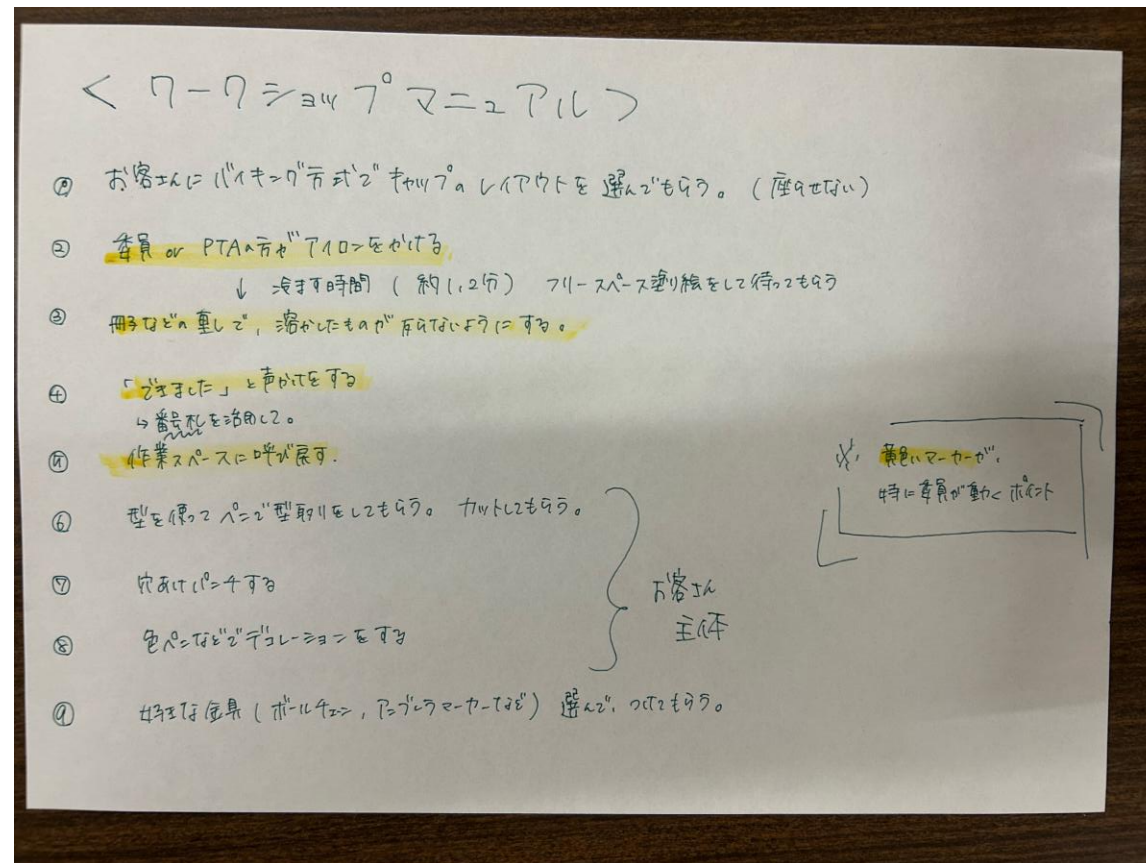 <ワークショップマニュアル>
① お客さんにバイキング方式でキャップのレイアウトを選んでもらう。(座らせない)
② 委員 or PTAの方がアイロンをかける
↓ 冷ます時間 (約1,2分) フリースペース塗り絵をして待ってもらう
③ 冊子などの重しで、溶かしたものが反らないようにする。
④ 「できました」と声かけをする
↳ 番号札を活用して。
⑤ 作業スペースに呼び戻す.
⑥ 型を使ってペンで型取りをしてもらう。 カットしてもらう。
⑦ 穴あけパンチする
⑧ 色ペンなどでデコレーションをする
⑨ 好きな金具 (ボールチェーン, アンブレラマーカーなど) 選んで、つけてもらう。
お客さん
主体
※, 黄色いマーカーが、
特に委員が動くポイント